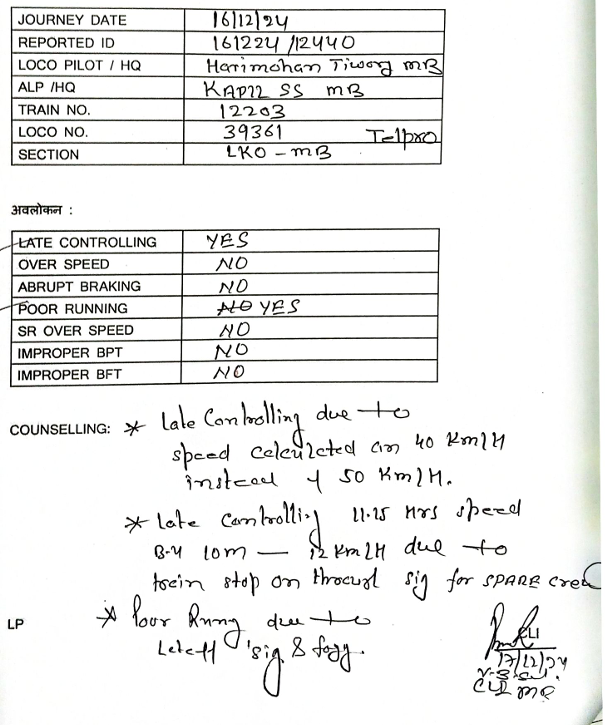 JOURNEY DATE 16/12/24
REPORTED ID 161224/12440
LOCO PILOT / HQ Harimohan Tiwary MB
ALP /HQ KAPIL SS MB
TRAIN NO. 12203
LOCO NO. 39361 Telpro
SECTION LKO - MB
अवलोकन :
LATE CONTROLLING YES
OVER SPEED NO
ABRUPT BRAKING NO
POOR RUNNING NO YES
SR OVER SPEED NO
IMPROPER BPT NO
IMPROPER BFT NO
COUNSELLING: * late Controlling due to
speed calculated on 40 Km/H
instead of 50 Km/H.
* late Controlling 11.25 Hrs speed
B-4 10m — 12 Km/H due to
train stop on through sig for SPARE crew
LP * Poor Runng due to
sig & fogg.
17/12/24
CLI MB